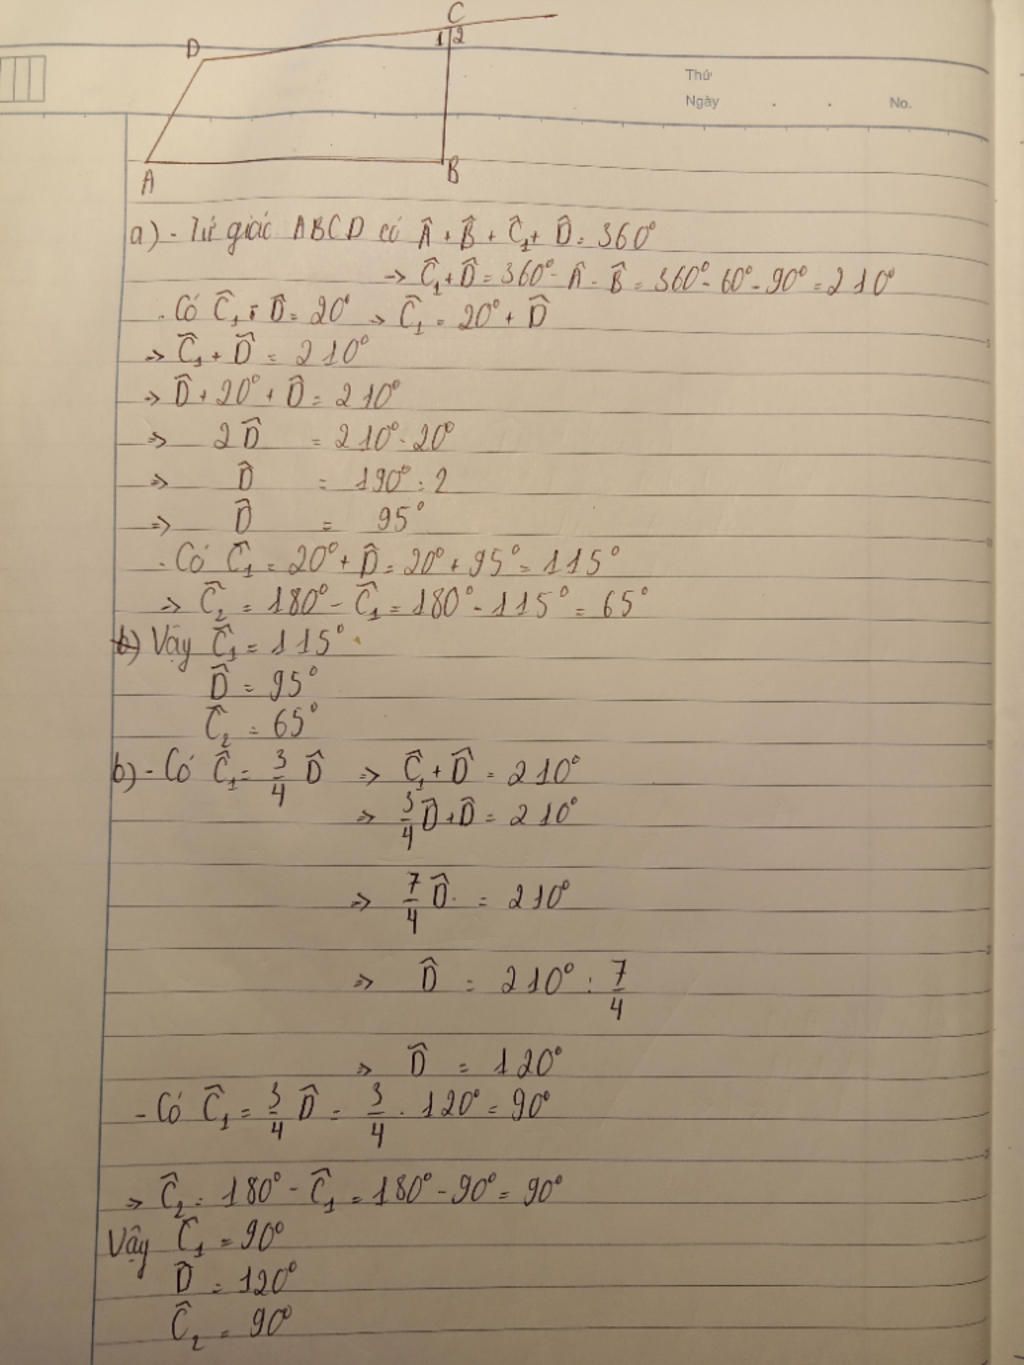 C
D
1 2
Thứ
Ngày . . No.
A
B
a) - Tứ giác ABCD có Â + B̂ + Ĉ₁ + D̂ = 360°
=> Ĉ₁ + D̂ = 360° - Â - B̂ = 360° - 60° - 90° = 210°
- Có Ĉ₁ - D̂ = 20° => Ĉ₁ = 20° + D̂
=> Ĉ₁ + D̂ = 210°
=> D̂ + 20° + D̂ = 210°
=> 2D̂ = 210° - 20°
=> D̂ = 190° : 2
=> D̂ = 95°
- Có Ĉ₁ = 20° + D̂ = 20° + 95° = 115°
=> Ĉ₂ = 180° - Ĉ₁ = 180° - 115° = 65°
b) Vậy Ĉ₁ = 115°
D̂ = 95°
Ĉ₂ = 65°
b) - Có Ĉ₁ = 3/4 D̂ => Ĉ₁ + D̂ = 210°
=> 3/4 D̂ + D̂ = 210°
=> 7/4 D̂ = 210°
=> D̂ = 210° : 7/4
=> D̂ = 120°
- Có Ĉ₁ = 3/4 D̂ = 3/4 . 120° = 90°
=> Ĉ₂ = 180° - Ĉ₁ = 180° - 90° = 90°
Vậy Ĉ₁ = 90°
D̂ = 120°
Ĉ₂ = 90°